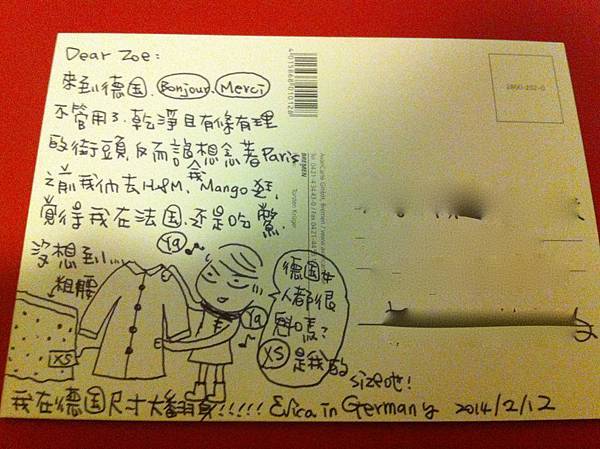 Dear Zoe:
來到德国, Bonjour, Merci
不管用了. 乾淨且有條有理
的街頭, 反而讓我想念着Paris
之前我们去H&M, Mango逛,
覺得我在法国, 还是吃鱉.
沒想到....
粗腰
XS
Ya
Ya
德国女
人都很
魁嗎?
XS 是我的
size吔!
我在德国尺寸大翻身!!!!! Erica in Germany 2014/2/12
4 015868 010128
BREMEN
Torsten Krüger
2860-252-0